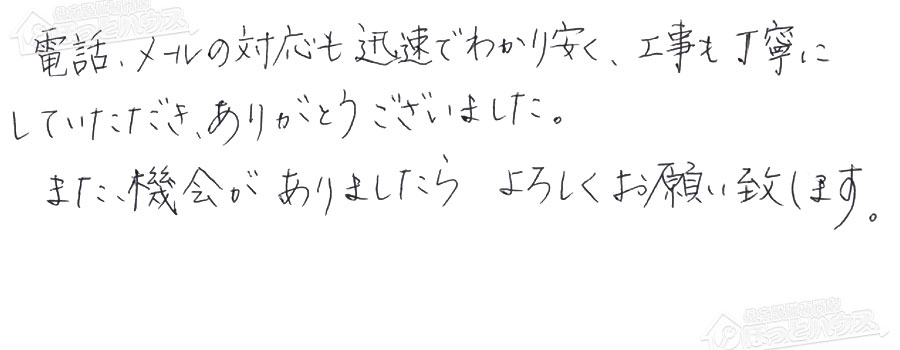 電話、メールの対応も迅速でわかり安く、工事も丁寧に
していただき、ありがとうございました。
また、機会がありましたら よろしくお願い致します。
ほっとハウス
ほっとハウス